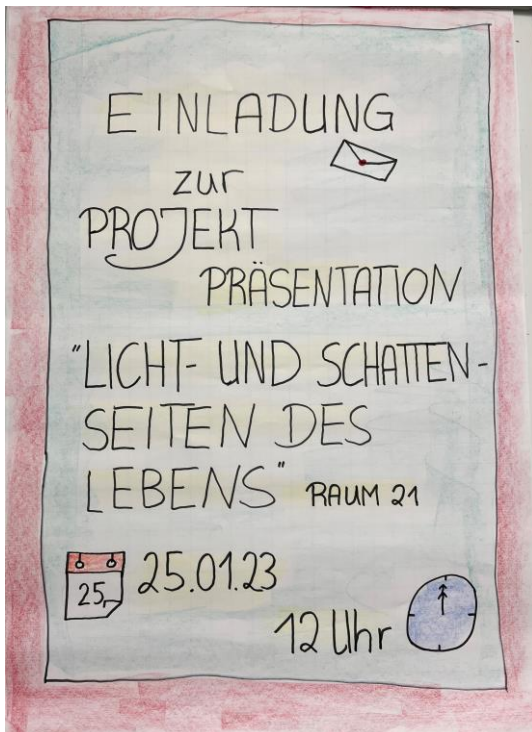 EINLADUNG
zur
PROJEKT
PRÄSENTATION
"LICHT- UND SCHATTEN-
SEITEN DES
LEBENS" RAUM 21
25. 25.01.23
12 Uhr